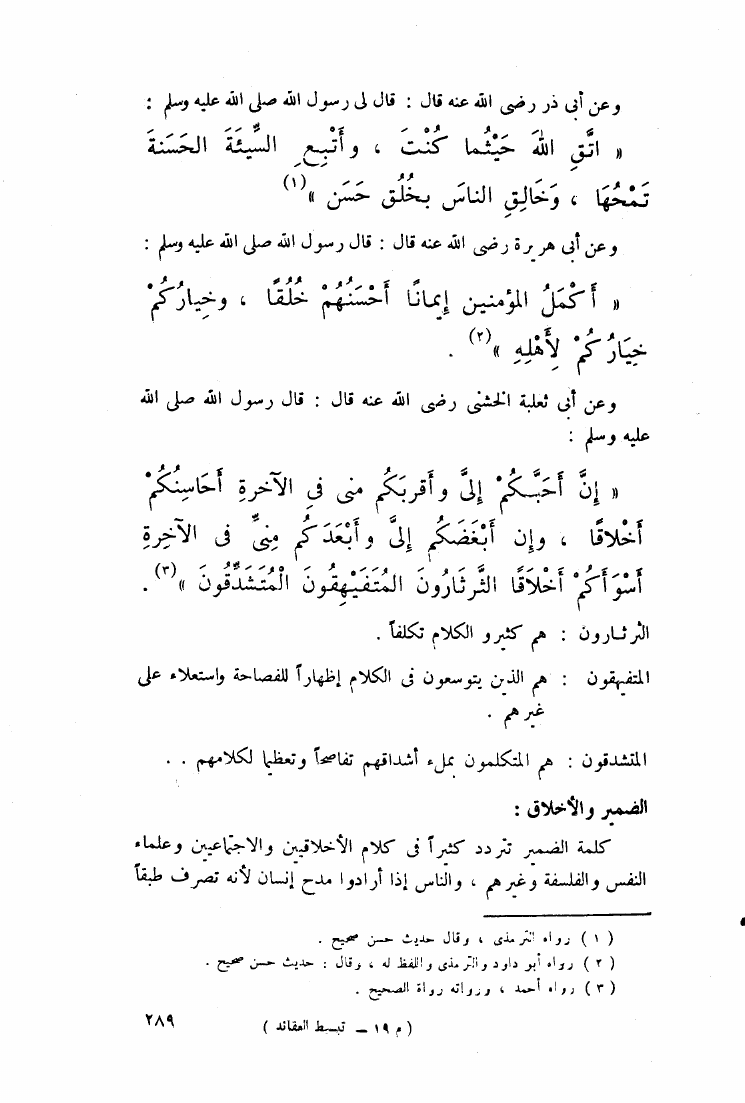 وعن أبى ذر رضى الله عنه قال : قال لى رسول الله صلى الله عليه وسلم :
« اتَّقِ اللهَ حَيْثُما كُنْتَ ، وأَتْبِعِ السَّيِّئَةَ الحَسَنةَ
تَمْحُهَا ، وَخَالِقِ الناسَ بِخُلُقٍ حَسَن »(١)
وعن أبى هريرة رضى الله عنه قال : قال رسول الله صلى الله عليه وسلم :
« أَكْمَلُ المؤمنين إيمانًا أَحْسَنُهُمْ خُلُقًا ، وخِيارُكُمْ
خِيَارُكُمْ لِأَهْلِهِ »(٢) .
وعن أبى ثعلبة الخشنى رضى الله عنه قال : قال رسول الله صلى الله
عليه وسلم :
« إِنَّ أَحَبَّكُمْ إِلىَّ وأَقربَكُم منى فى الآخرةِ أَحَاسِنُكُمْ
أَخْلاقًا ، وإن أَبْغَضَكُم إِلىَّ وأَبْعَدَكُم مِنِّى فى الآخِرةِ
أَسْوَأَكُمْ أَخْلَاقًا الثَّرثَارُونَ المُتَفَيْهِقُونَ الْمُتَشَدِّقُونَ »(٣) .
الثرثارون : هم كثيرو الكلام تكلفاً .
المتفيهقون : هم الذين يتوسعون فى الكلام إظهاراً للفصاحة واستعلاء على
غيرهم .
المتشدقون : هم المتكلمون بملء أشداقهم تفاصحاً وتعظيما لكلامهم . .
الضمير والأخلاق :
كلمة الضمير تتردد كثيراً فى كلام الأخلاقيين والاجتماعيين وعلماء
النفس والفلسفة وغيرهم ، والناس إذا أرادوا مدح إنسان لأنه تصرف طبقاً
( ١ ) رواه الترمذى ، وقال حديث حسن صحيح .
( ٢ ) رواه أبو داود والترمذى واللفظ له ، وقال : حديث حسن صحيح .
( ٣ ) رواه أحمد ، ورواته رواة الصحيح .
( م ١٩ – تبسط العقائد )
٢٨٩